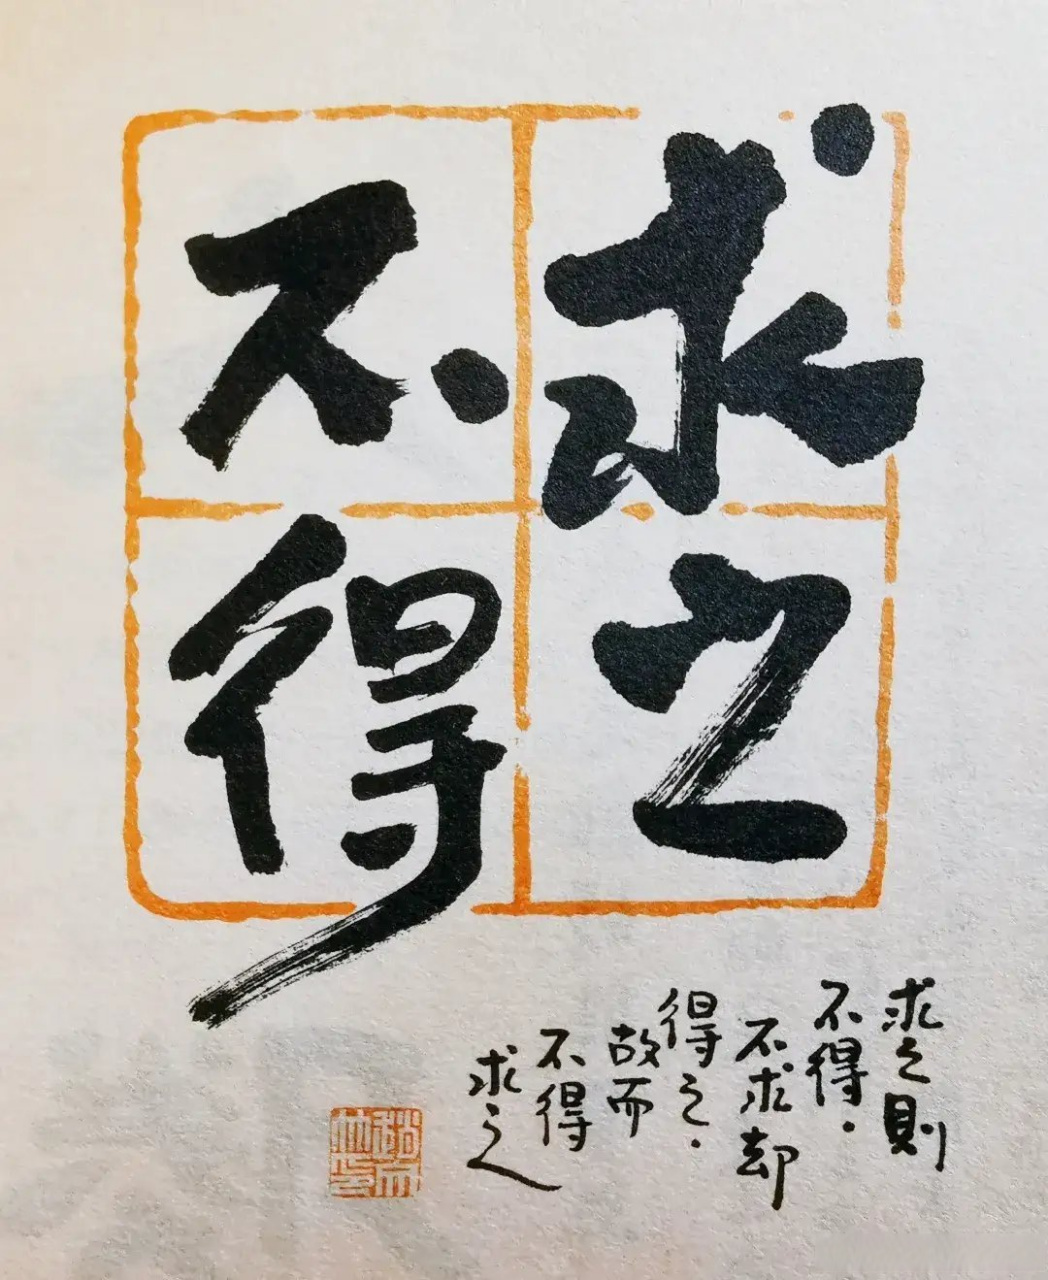 求之
不得
求之則
不得．
不求却
得之．
故而
不得
求之